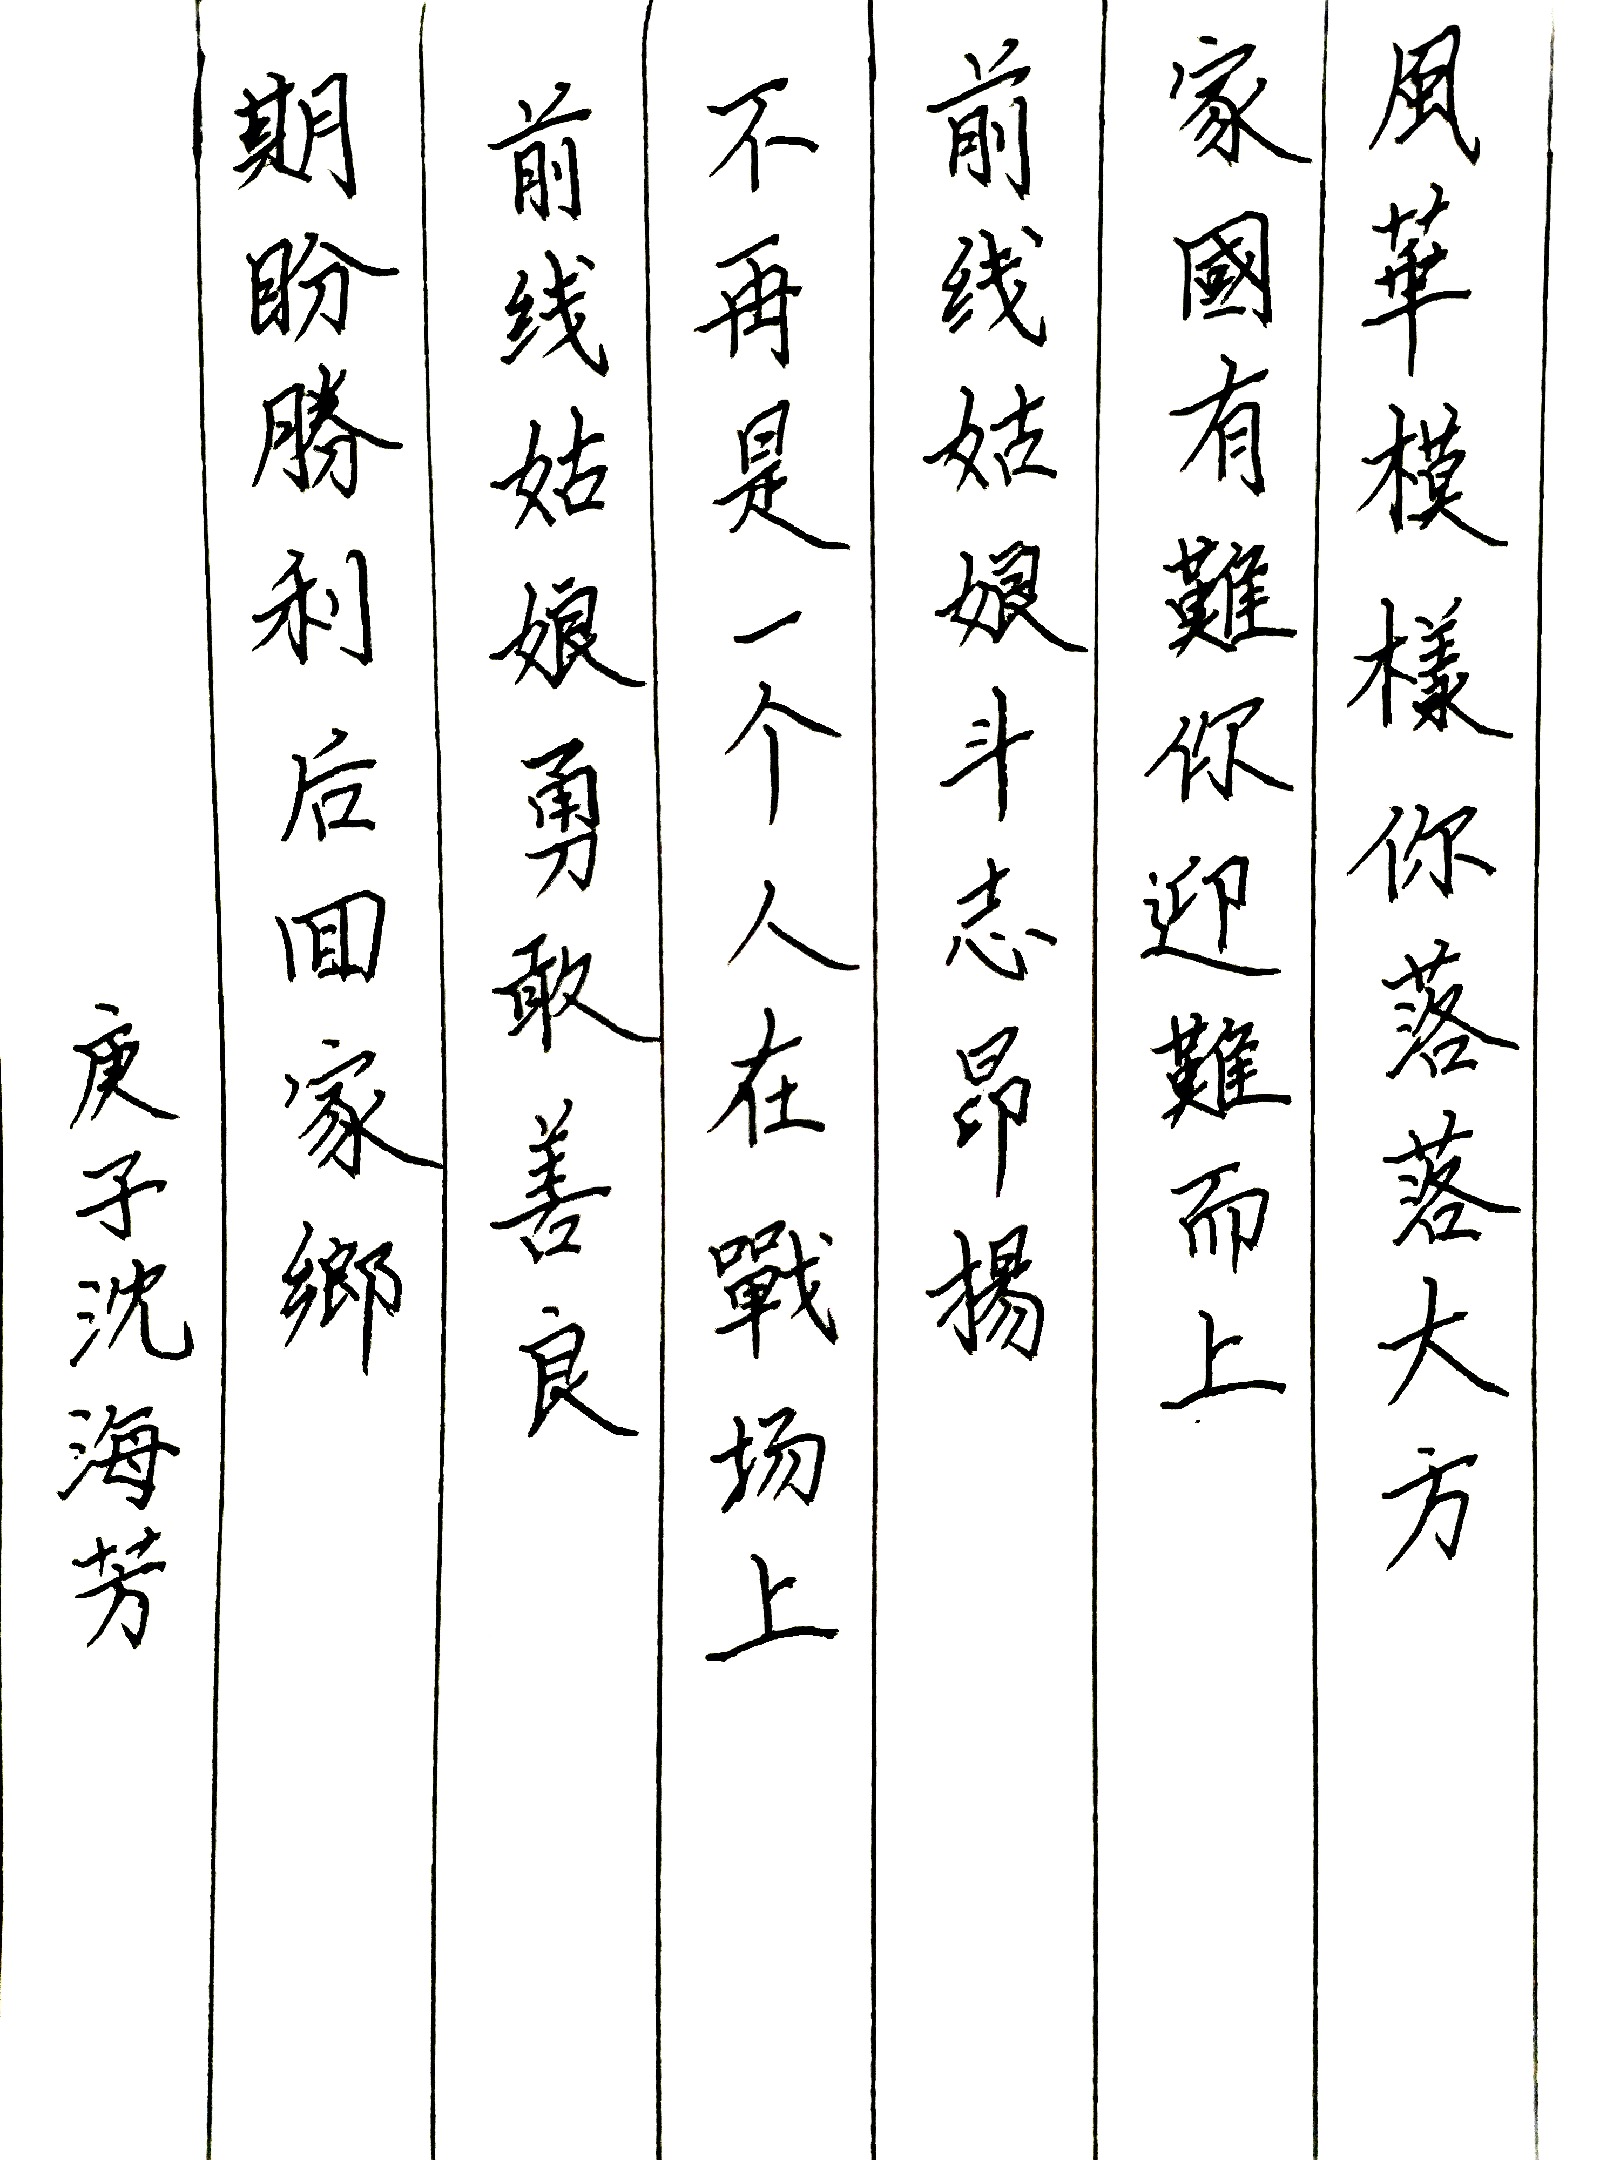 風華模樣你落落大方
家國有難你迎難而上
前线姑娘斗志昂揚
不再是一个人在戰场上
前线姑娘勇敢善良
期盼勝利后回家鄉
庚子沈海芳